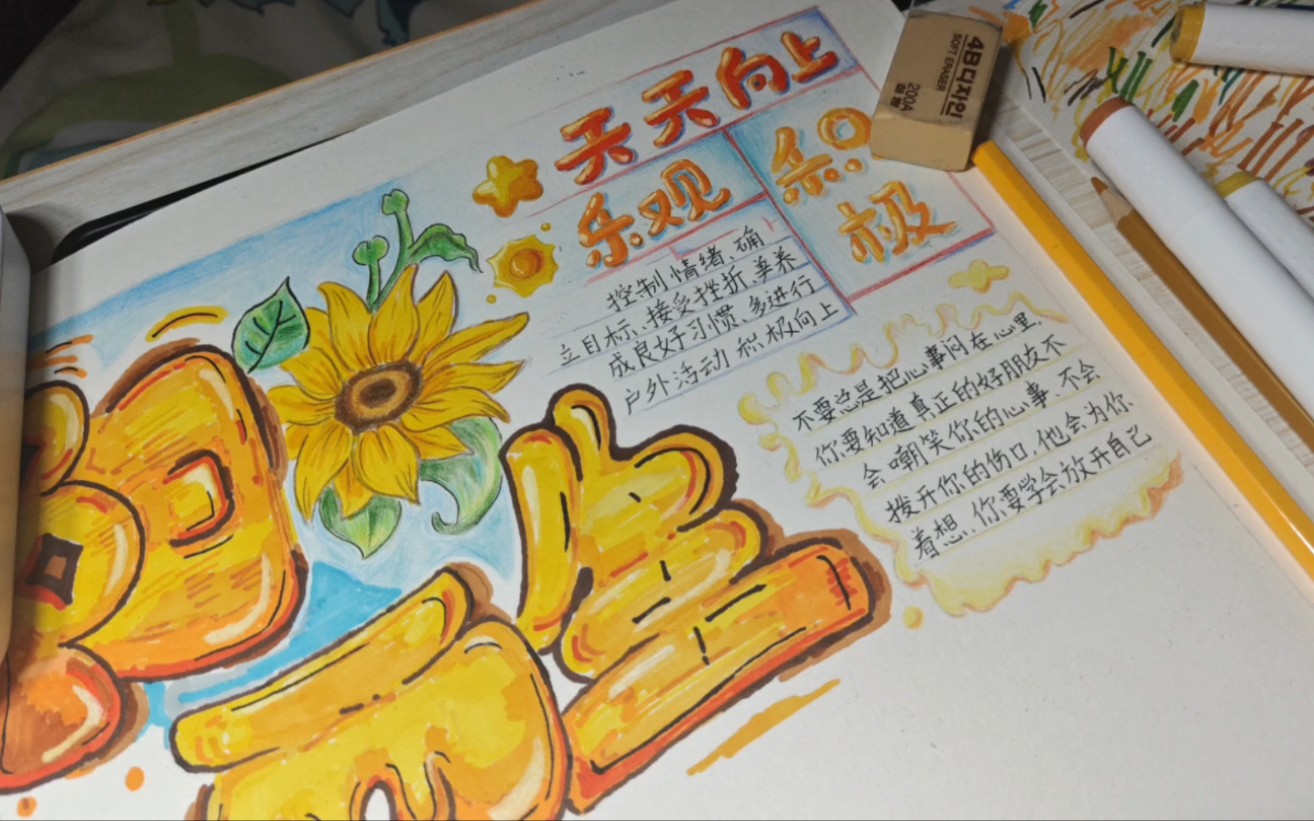 天天向上
乐观
积
极
控制情绪、确
立目标、接受挫折、养
成良好习惯、多进行
户外活动 积极向上
不要总是把心事闷在心里,
你要知道真正的好朋友不
会嘲笑你的心事、不会
拨开你的伤口,他会为你
着想、你要学会放开自己
阳
而生
4B디자인
SOFT ERASER
200A